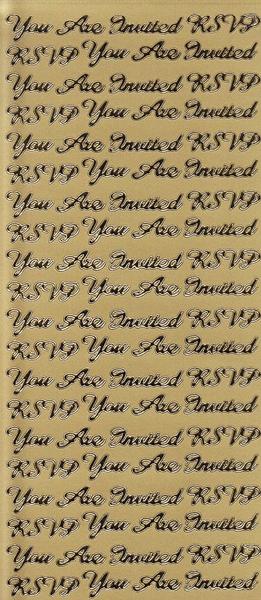 You Are Invited RSVP
RSVP You Are Invited
You Are Invited RSVP
RSVP You Are Invited
You Are Invited RSVP
RSVP You Are Invited
You Are Invited RSVP
RSVP You Are Invited
You Are Invited RSVP
RSVP You Are Invited
You Are Invited RSVP
RSVP You Are Invited
You Are Invited RSVP
RSVP You Are Invited
You Are Invited RSVP
RSVP You Are Invited
You Are Invited RSVP
RSVP You Are Invited
You Are Invited RSVP
RSVP You Are Invited